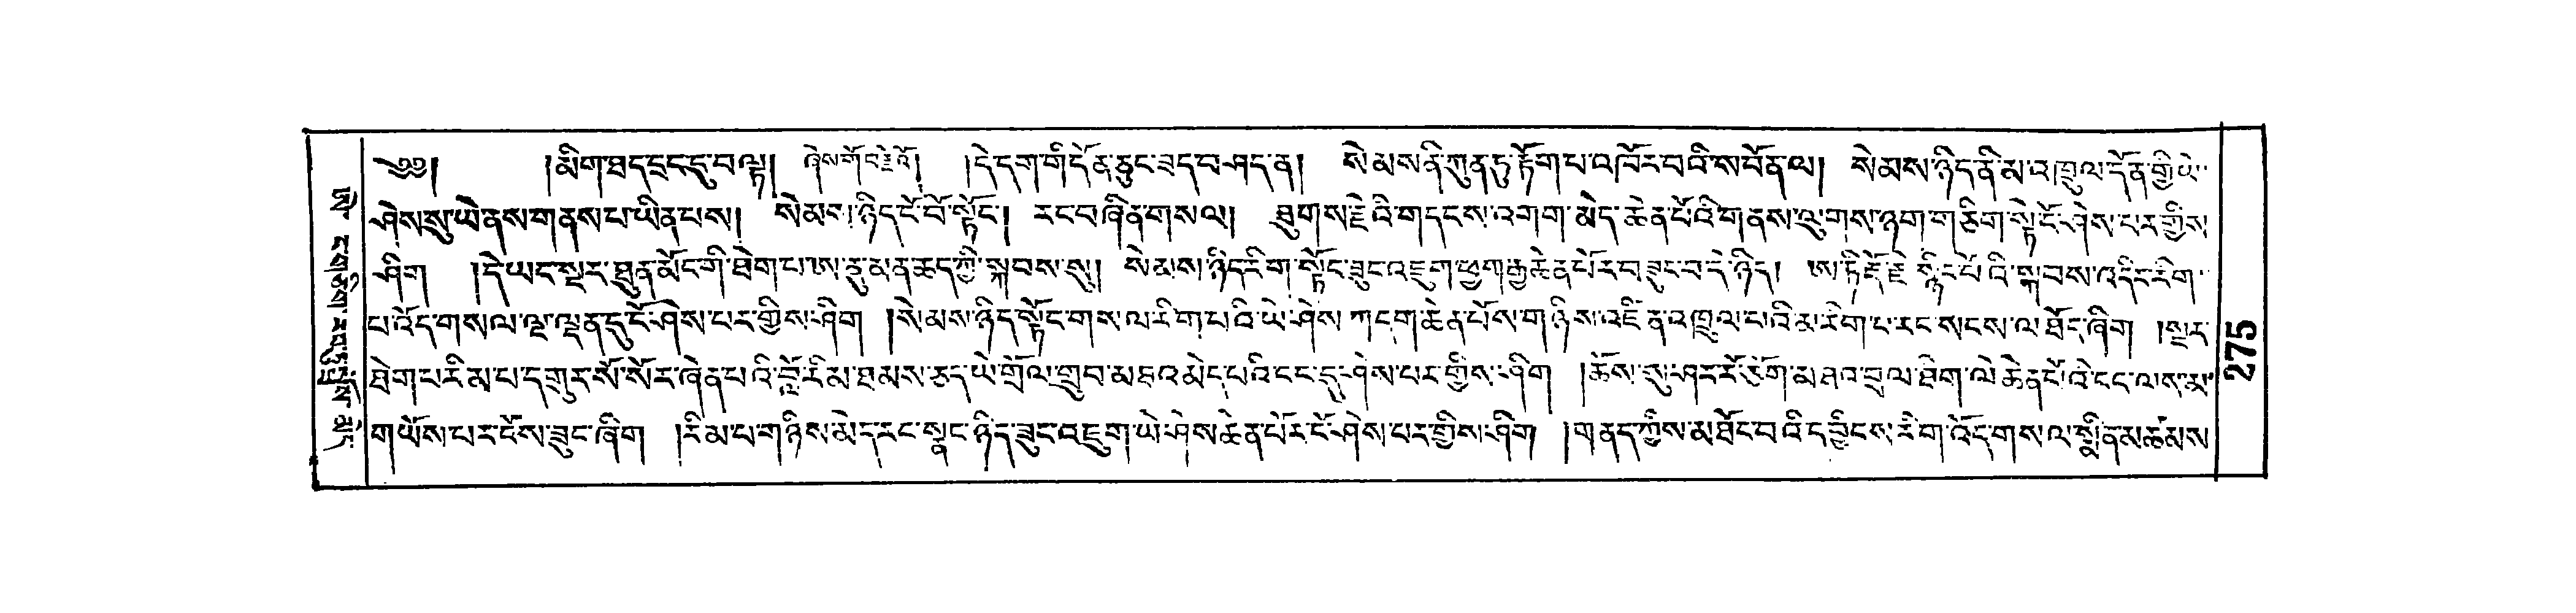 ༄༅། །མིག་ཐད་དྲང་དུ་བལྟ། ཞེས་གོབ་རྗེའོ། །དེ་དག་གི་དོན་ཅུང་ཟད་བཤད་ན། སེམས་ནི་ཀུན་ཏུ་རྟོག་པ་འཁོར་བའི་ས་བོན་ལ། སེམས་ཉིད་ནི་མ་འཁྲུལ་དོན་གྱི་ཡེ་
ཤེས་སུ་ཡེ་ནས་གནས་པ་ཡིན་པས། སེམས་ཉིད་ངོ་བོ་སྟོང་། རང་བཞིན་གསལ། ཐུགས་རྗེའི་གདངས་འགག་མེད་ཆེན་པོའི་གནས་ལུགས་ཉག་གཅིག་སྟེ་ངོ་ཤེས་པར་གྱིས་
ཤིག །དེ་ཡང་སྔར་ཐུན་མོང་གི་ཐེག་པ་ཨ་ནུ་མན་ཆད་ཀྱི་སྐབས་སུ། སེམས་ཉིད་རིག་སྟོང་ཟུང་འཇུག་ཕྱག་རྒྱ་ཆེན་པོར་བཟུང་བ་དེ་ཉིད། ཨ་ཏི་རྡོ་རྗེ་སྙིང་པོའི་སྐབས་འདིར་རིག་
པ་འོད་གསལ་ལྔ་ལྡན་དུ་ངོ་ཤེས་པར་གྱིས་ཤིག །སེམས་ཉིད་སྟོང་གསལ་རིག་པའི་ཡེ་ཤེས་ཀ་དག་ཆེན་པོས་གཉིས་འཛིན་འཁྲུལ་པའི་མ་རིག་པ་རང་སངས་ལ་ཐོང་ཞིག །སྔར་
ཐེག་པ་རིམ་པ་དགུར་སོ་སོར་ཞེན་པའི་བློ་རིམ་ཐམས་ཅད་ཡེ་གྲོལ་གྲུབ་མཐའ་མེད་པའི་ངང་དུ་ཤེས་པར་གྱིས་ཤིག །ཆོས་སུ་ཤར་རོ་ཅོག་མཐའ་བྲལ་ཐིག་ལེ་ཆེན་པོའི་ངང་ལས་མ་
གཡོས་པར་ངོས་ཟུང་ཞིག །རིམ་པ་གཉིས་མེད་རང་སྣང་ཉིད་ཟུང་འཇུག་ཡེ་ཤེས་ཆེན་པོར་ངོ་ཤེས་པར་གྱིས་ཤིག །གནད་ཀྱིས་མཐོང་བའི་དབྱིངས་རིག་འོད་གསལ་སྨིན་མཚམས་
572